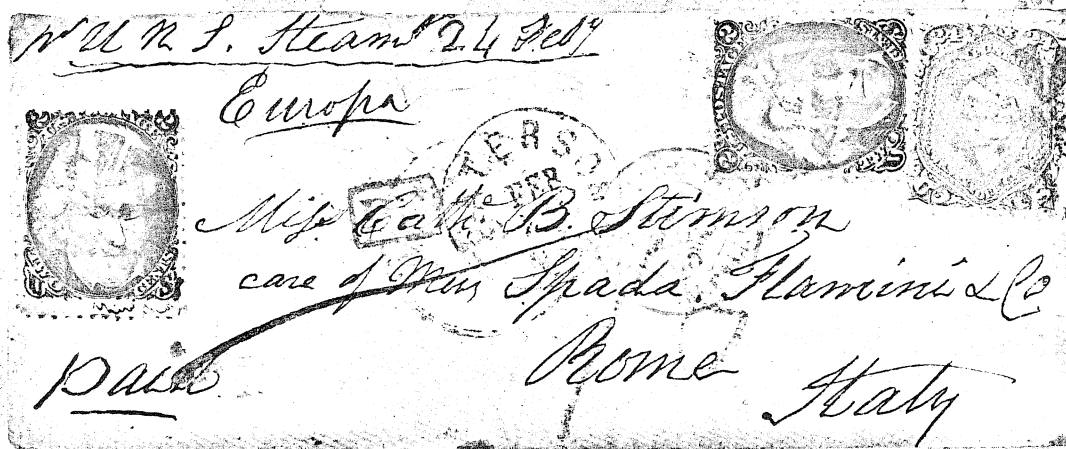 pr U N S. Steamr 24 Feby
Europa
TERSO
FEB
Miss Cath. B. Stimson
care of Mess Spada. Flamini & Co
Rome
Italy
paid